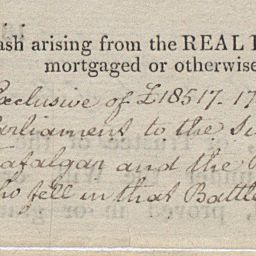 ash arising from the REAL
mortgaged or otherwise
Exclusive of £18517. 17
Parliament to the
Trafalgar and the
who fell in that Battle